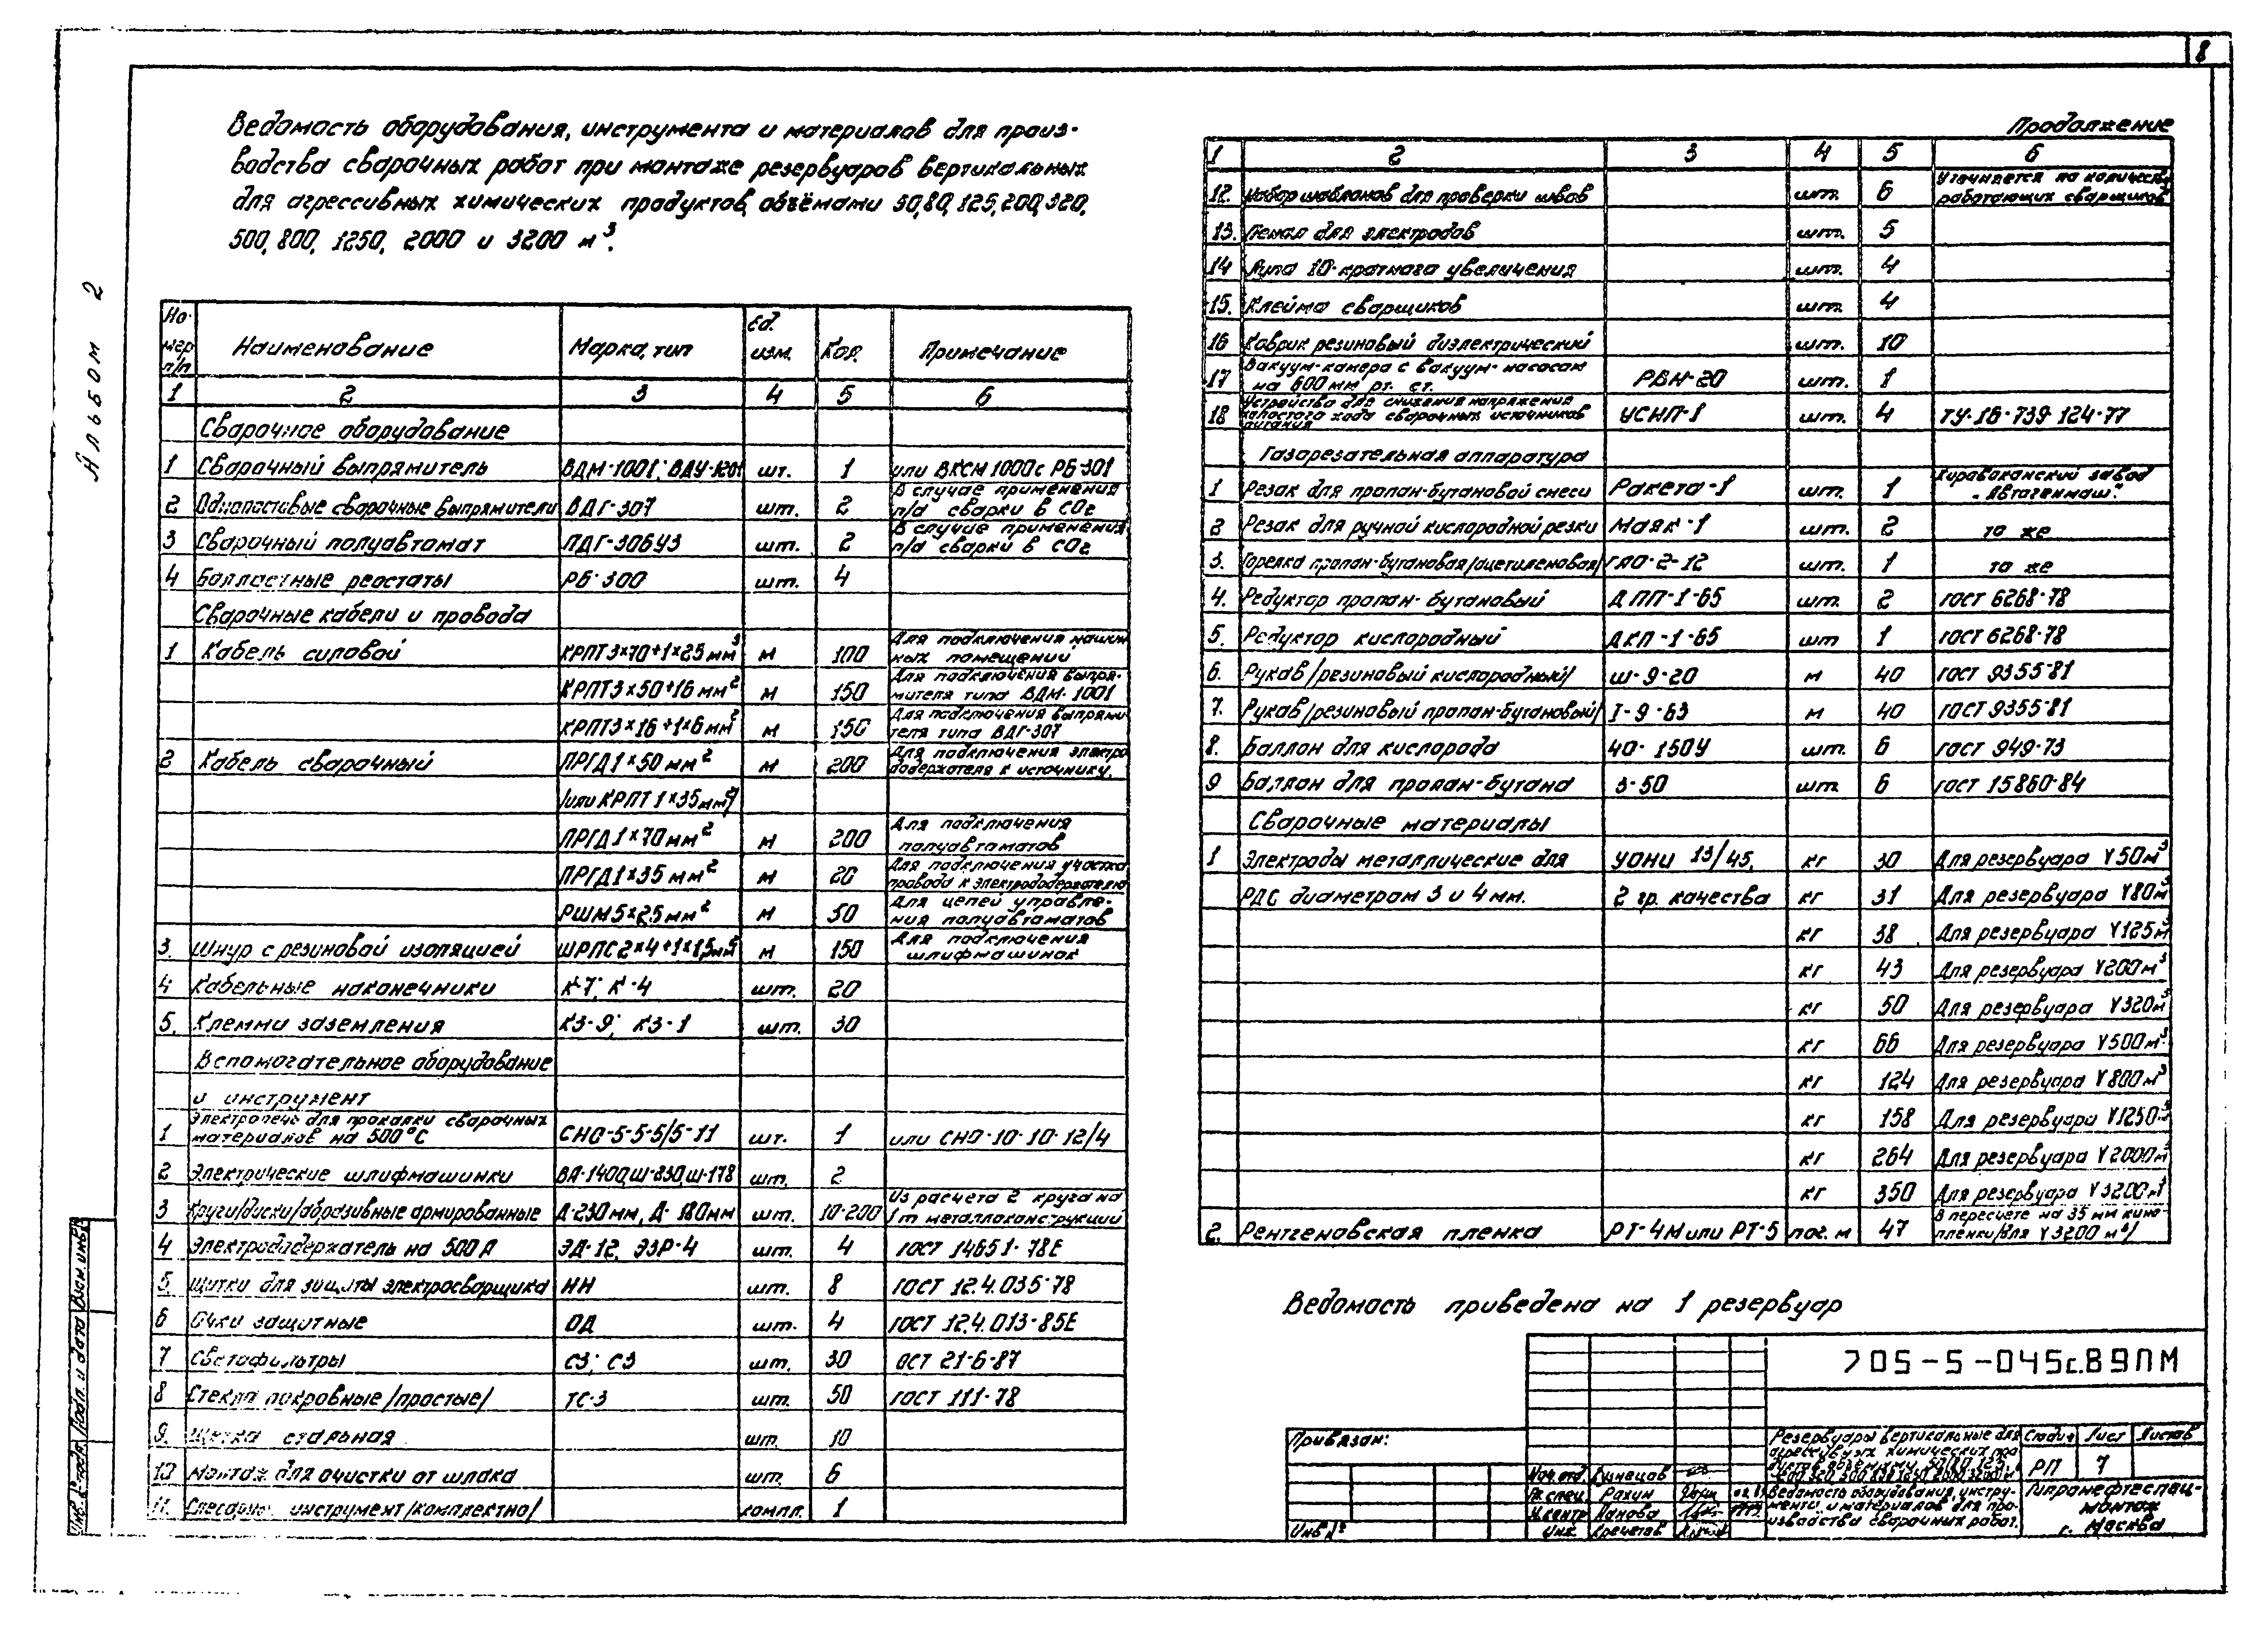 8
Альбом 2
Ведомость оборудования, инструмента и материалов для произ-
водства сварочных работ при монтаже резервуаров вертикальных
для агрессивных химических продуктов, объёмами 50, 80, 125, 200, 320,
500, 800, 1250, 2000 и 3200 м³.
Но-мер п/п Наименование Марка, тип Ед. изм. Кол. Примечание
1 2 3 4 5 6
Сварочное оборудование
1 Сварочный выпрямитель ВДМ-1001; ВДУ-1201 шт. 1 или ВКСМ 1000 с РБ-301
2 Однопостовые сварочные выпрямители ВДГ-307 шт. 2 В случае применения п/а сварки в СО₂
3 Сварочный полуавтомат ПДГ-306У3 шт. 2 В случае применения п/а сварки в СО₂
4 Балластные реостаты РБ-300 шт. 4
Сварочные кабели и провода
1 Кабель силовой КРПТ 3×70+1×25 мм³ м 100 Для подключения машин-ных помещений
КРПТ 3×50+16 мм² м 150 Для подключения выпря-мителя типа ВДМ-1001
КРПТ 3×16+1×6 мм² м 150 Для подключения выпрями-теля типа ВДГ-307
2 Кабель сварочный ПРГД 1×50 мм² м 200 Для подключения электро-додержателя к источнику.
/или КРПТ 1×35 мм²/
ПРГД 1×70 мм² м 200 Для подключения полуавтоматов
ПРГД 1×35 мм² м 20 Для подключения участка провода к электрододержателю
РШМ 5×2,5 мм² м 50 Для цепей управле-ния полуавтоматов
3. Шнур с резиновой изоляцией ШРПС 2×4+1×1,5 мм² м 150 Для подключения шлифмашинок
4 Кабельные наконечники К-7; К-4 шт. 20
5. Клеммы заземления КЗ-9; КЗ-1 шт. 30
Вспомогательное оборудование
и инструмент
1 Электропечь для прокалки сварочных материалов на 500°С СНО-5-5-5/5-11 шт. 1 или СНО-10-10-12/4
2 Электрические шлифмашинки ВА-1400, Ш-230, Ш-178 шт. 2
3 Круги/диски/абразивные армированные Д-230мм, Д-180мм шт. 10-200 Из расчета 2 круга на 1т металлоконструкций
4 Электрододержатель на 500 А ЭД-12, ЭЗР-4 шт. 4 ГОСТ 14651-78Е
5. Щитки для защиты электросварщика НН шт. 8 ГОСТ 12.4.035-78
6 Очки защитные ОД шт. 4 ГОСТ 12.4.013-85Е
7 Светофильтры С3; С3 шт. 30 ОСТ 21-6-87
8 Стекла покровные /простые/ ТС-3 шт. 50 ГОСТ 111-78
9. Щетка стальная шт 10
10 для очистки от шлака шт. 6
11. Слесарный инструмент /комплектно/ компл. 1
Продолжение
1 2 3 4 5 6
12. Набор шаблонов для проверки швов шт. 6 Уточняется по количеству работающих сварщиков
13. Пенал для электродов шт. 5
14 Лупа 10-кратного увеличения шт. 4
15. Клейма сварщиков шт. 4
16 Коврик резиновый диэлектрический шт. 10
17 Вакуум-камера с вакуум-насосом на 600 мм рт. ст. РВН-20 шт. 1
18 Устройства для снижения напряжения холостого хода сварочных источников питания УСНП-1 шт. 4 ТУ-16-739-124-77
Газорезательная аппаратура
1 Резак для пропан-бутановой смеси Ракета-1 шт. 1 Кироваканский завод „Автогенмаш".
2 Резак для ручной кислородной резки Маяк-1 шт. 2 то же
3. Горелка пропан-бутановая/ацетиленовая/ ГАО-2-12 шт. 1 то же
4. Редуктор пропан-бутановый ДПП-1-65 шт. 2 ГОСТ 6268-78
5. Редуктор кислородный ДКП-1-65 шт 1 ГОСТ 6268-78
6. Рукав /резиновый кислородный/ Ш-9-20 м 40 ГОСТ 9355-81
7. Рукав /резиновый пропан-бутановый/ I-9-63 м 40 ГОСТ 9355-81
8. Баллон для кислорода 40-150У шт. 6 ГОСТ 949-73
9 Баллон для пропан-бутана 3-50 шт. 6 ГОСТ 15860-84
Сварочные материалы
1 Электроды металлические для УОНИ 13/45, кг 30 Для резервуара V 50м³
РДС диаметром 3 и 4 мм. 2 гр. качества кг 31 Для резервуара V 80м³
кг 38 Для резервуара V 125м³
кг 43 Для резервуара V 200м³
кг 50 Для резервуара V 320м³
кг 66 Для резервуара V 500м³
кг 124 Для резервуара V 800м³
кг 158 Для резервуара V 1250м³
кг 264 Для резервуара V 2000м³
кг 350 Для резервуара V 3200м³
2. Рентгеновская пленка РТ-4М или РТ-5 пог. м 47 В пересчете на 35 мм кино-пленки/для V 3200 м³/
Ведомость приведена на 1 резервуар
705-5-045с.89ПМ
Привязан:
Инв №
Нач. отд. Кузнецов
Гл. спец. Рахин
Н. контр. Панова
Инж. Кречетов
Резервуары вертикальные для
агрессивных химических про-
дуктов объёмами 50, 80, 125,
200, 320, 500, 800, 1250, 2000, 3200 м³
Стадия Лист Листов
РП 7
Ведомость оборудования, инстру-
мента и материалов для про-
изводства сварочных работ.
Гипронефтеспец-
монтаж
г. Москва
Взам. инв. №
Подп. и дата
Инв. № подл.